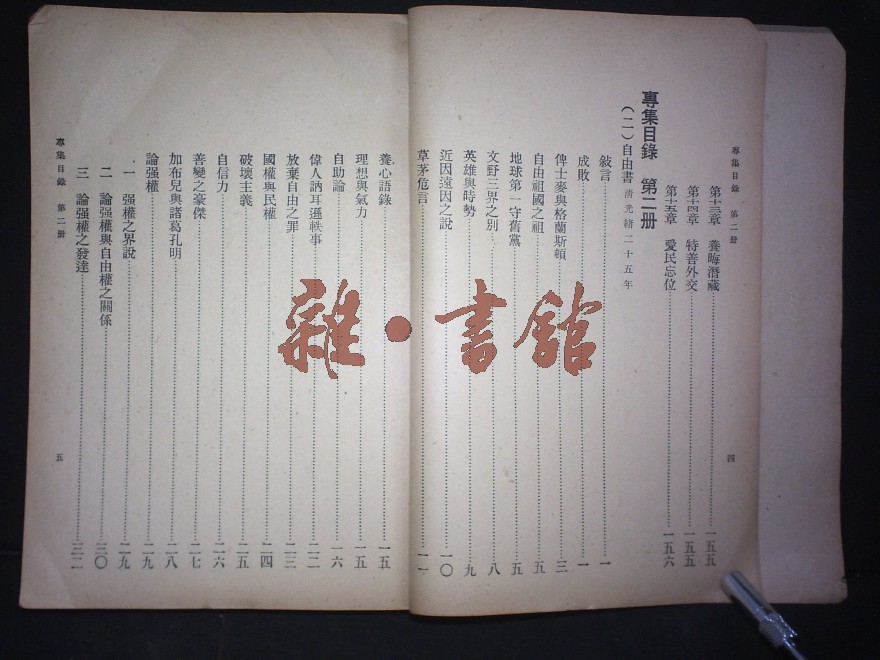 專集目錄 第二册
四
第十三章 養晦潛藏 一五五
第十四章 特善外交 一五五
第十五章 愛民忘位 一五六
專集目錄 第二册
(二)自由書 清光緒二十五年
敍言 一
成敗 一
俾士麥與格蘭斯頓 三
自由祖國之祖 五
地球第一守舊黨 五
文野三界之別 八
英雄與時勢 九
近因遠因之說 一〇
草茅危言 一一
養心語錄 一五
理想與氣力 一五
自助論 一六
偉人訥耳遜軼事 二二
放棄自由之罪 二三
國權與民權 二四
破壞主義 二五
自信力 二六
善變之豪傑 二七
加布兒與諸葛孔明 二八
論强權 二九
一 强權之界說 二九
二 論强權與自由權之關係 三〇
三 論强權之發達 三二
專集目錄 第二册
五
雜·書館